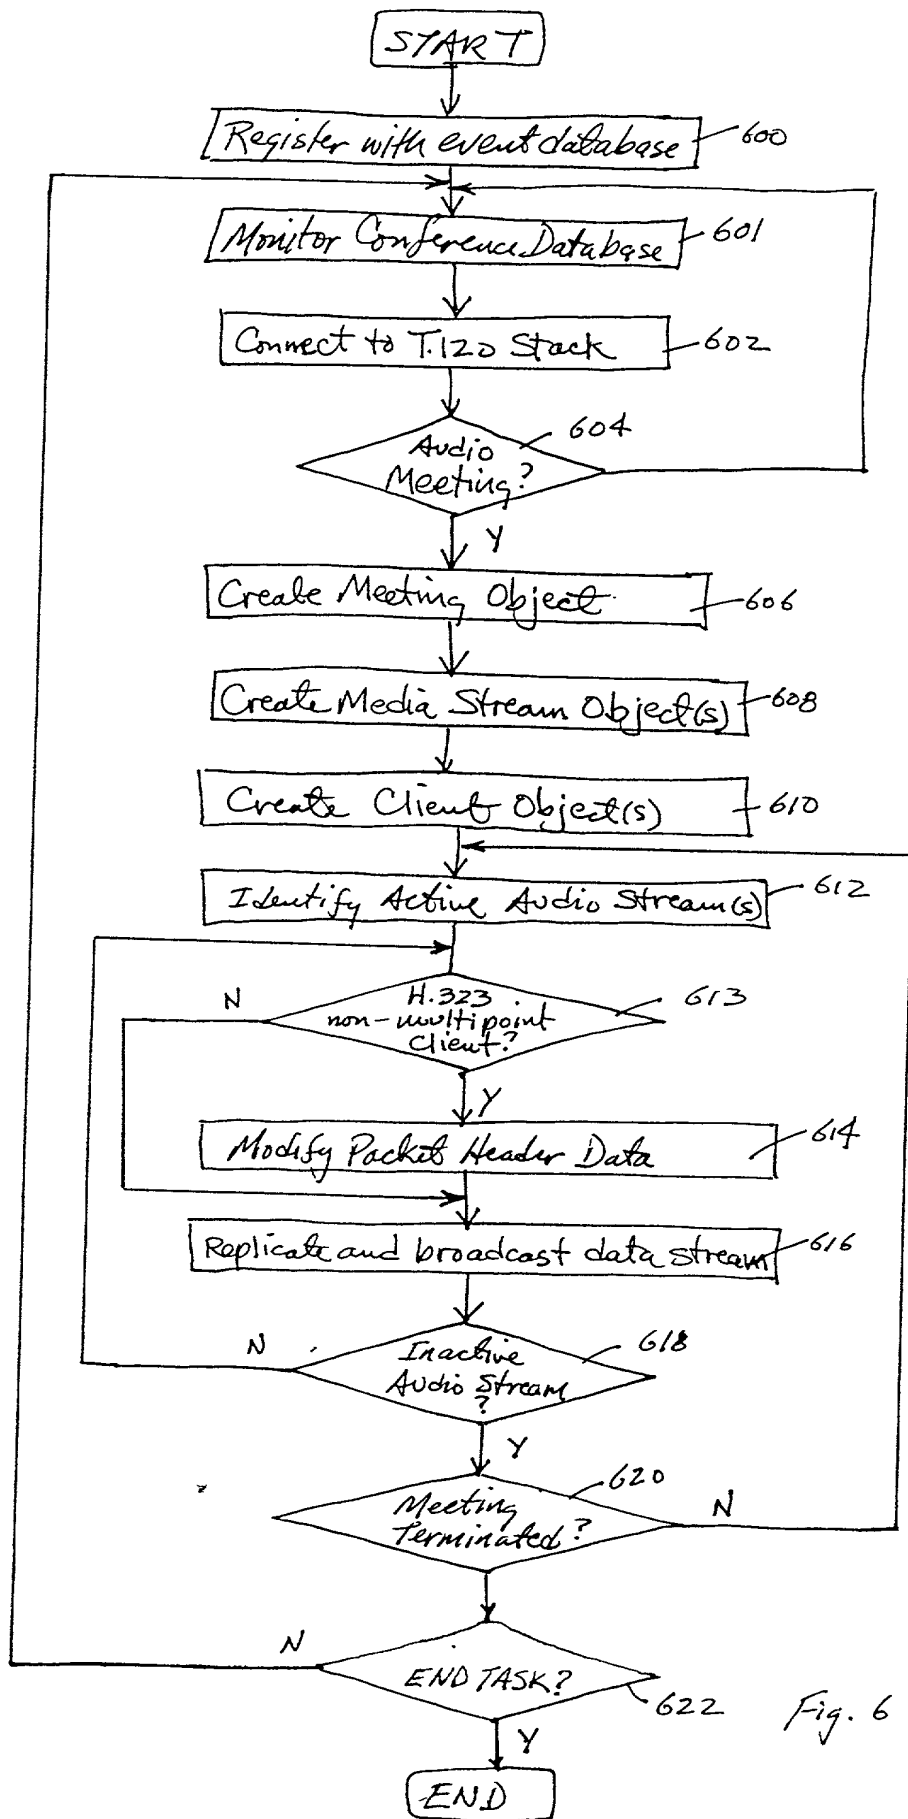 START
Register with event database
600
Monitor Conference Database
601
Connect to T.120 Stack
602
Audio
Meeting?
604
Y
Create Meeting Object
606
Create Media Stream Object(s)
608
Create Client Object(s)
610
Identify Active Audio Stream(s)
612
N
H.323
non-multipoint
Client?
613
Y
Modify Packet Header Data
614
Replicate and broadcast data stream
616
N
Inactive
Audio Stream
?
618
Y
Meeting
Terminated?
620
N
N
END TASK?
622
Y
END
Fig. 6